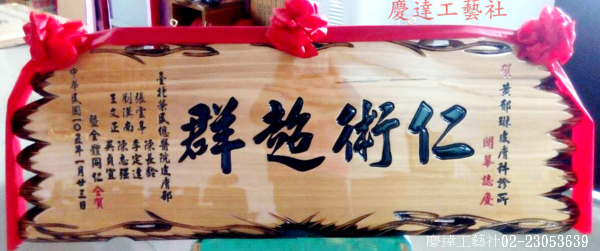 慶達工藝社
賀黃郁琳皮膚科診所
開業誌慶
仁術超群
臺北榮民總醫院皮膚部
張雲亭 陳長齡
劉漢南 李定達
王文正 陳志強
吳貞宜
暨全體同仁 全賀
中華民國一0五年一月廿三日
慶達工藝社02-23053639